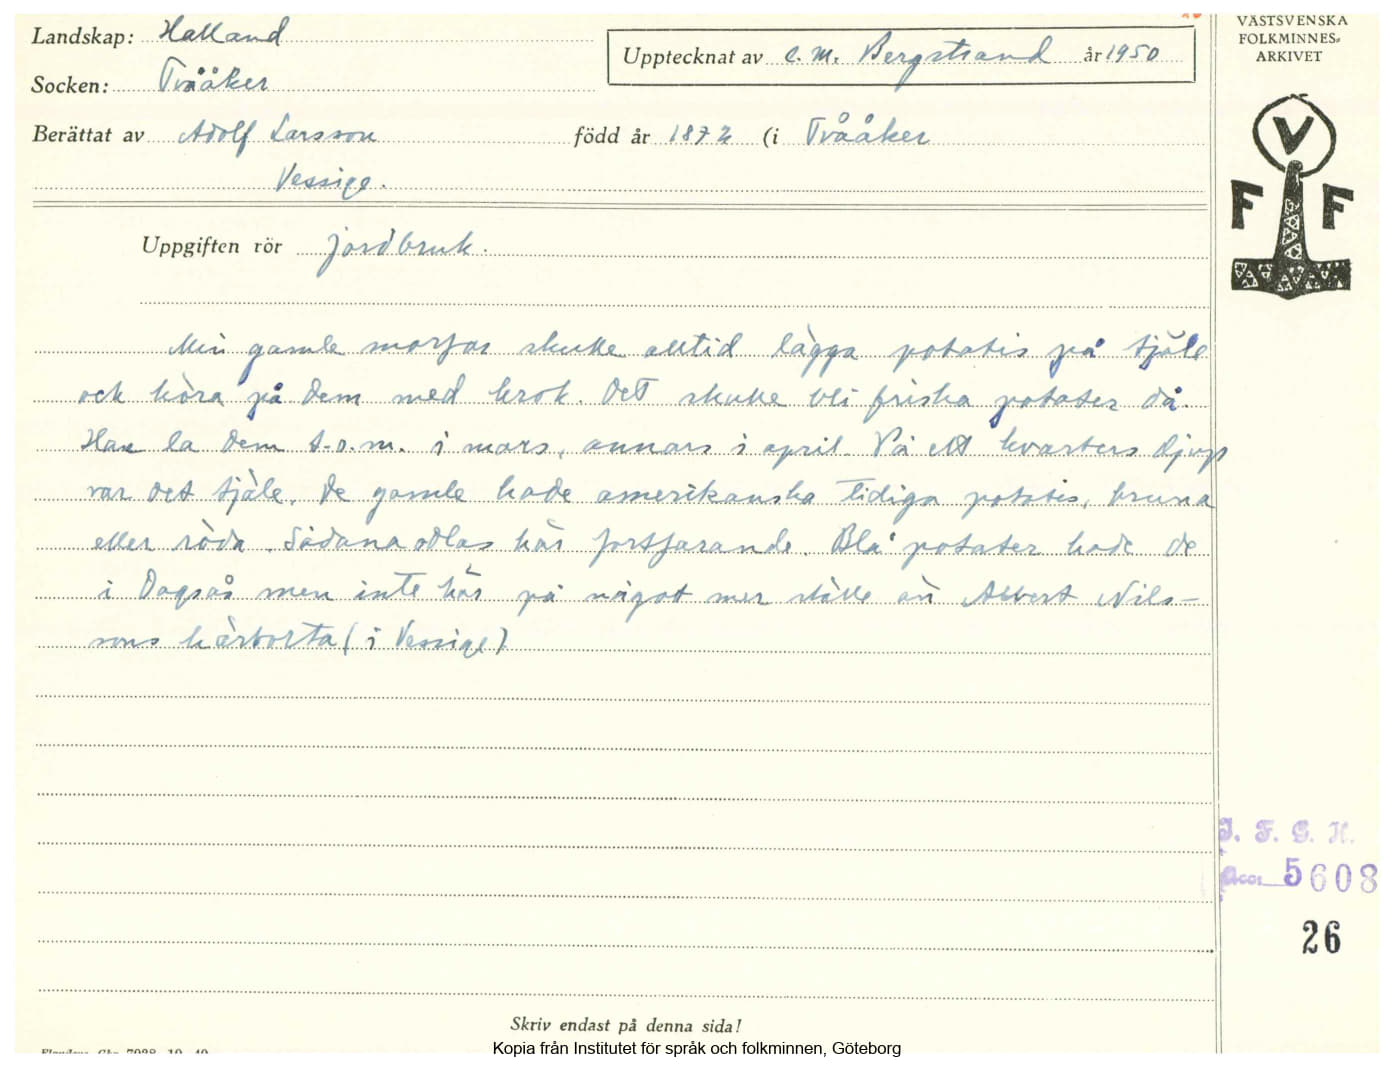 Landskap: Halland
Upptecknat av C. M. Bergstrand år 1950
VÄSTSVENSKA
FOLKMINNES-
ARKIVET
Socken: Tvååker
Berättat av Adolf Larsson född år 1872 (i Tvååker
Vessige.
V
F F
Uppgiften rör jordbruk.
Min gamle morfar skulle alltid lägga potatis på tjäle
och köra på dem med krok. Det skulle bli friska potater då.
Han la dem t.o.m. i mars, annars i april. På ett kvarters djup
var det tjäle. De gamle hade amerikanska tidiga potatis, bruna
eller röda. Sådana odlas här fortfarande. Blå potater hade de
i Dagsås men inte här på något mer ställe än Albert Nils-
sons härborta (i Vessige)
I. F. G. H.
Acc. 5608
26
Skriv endast på denna sida!
Kopia från Institutet för språk och folkminnen, Göteborg